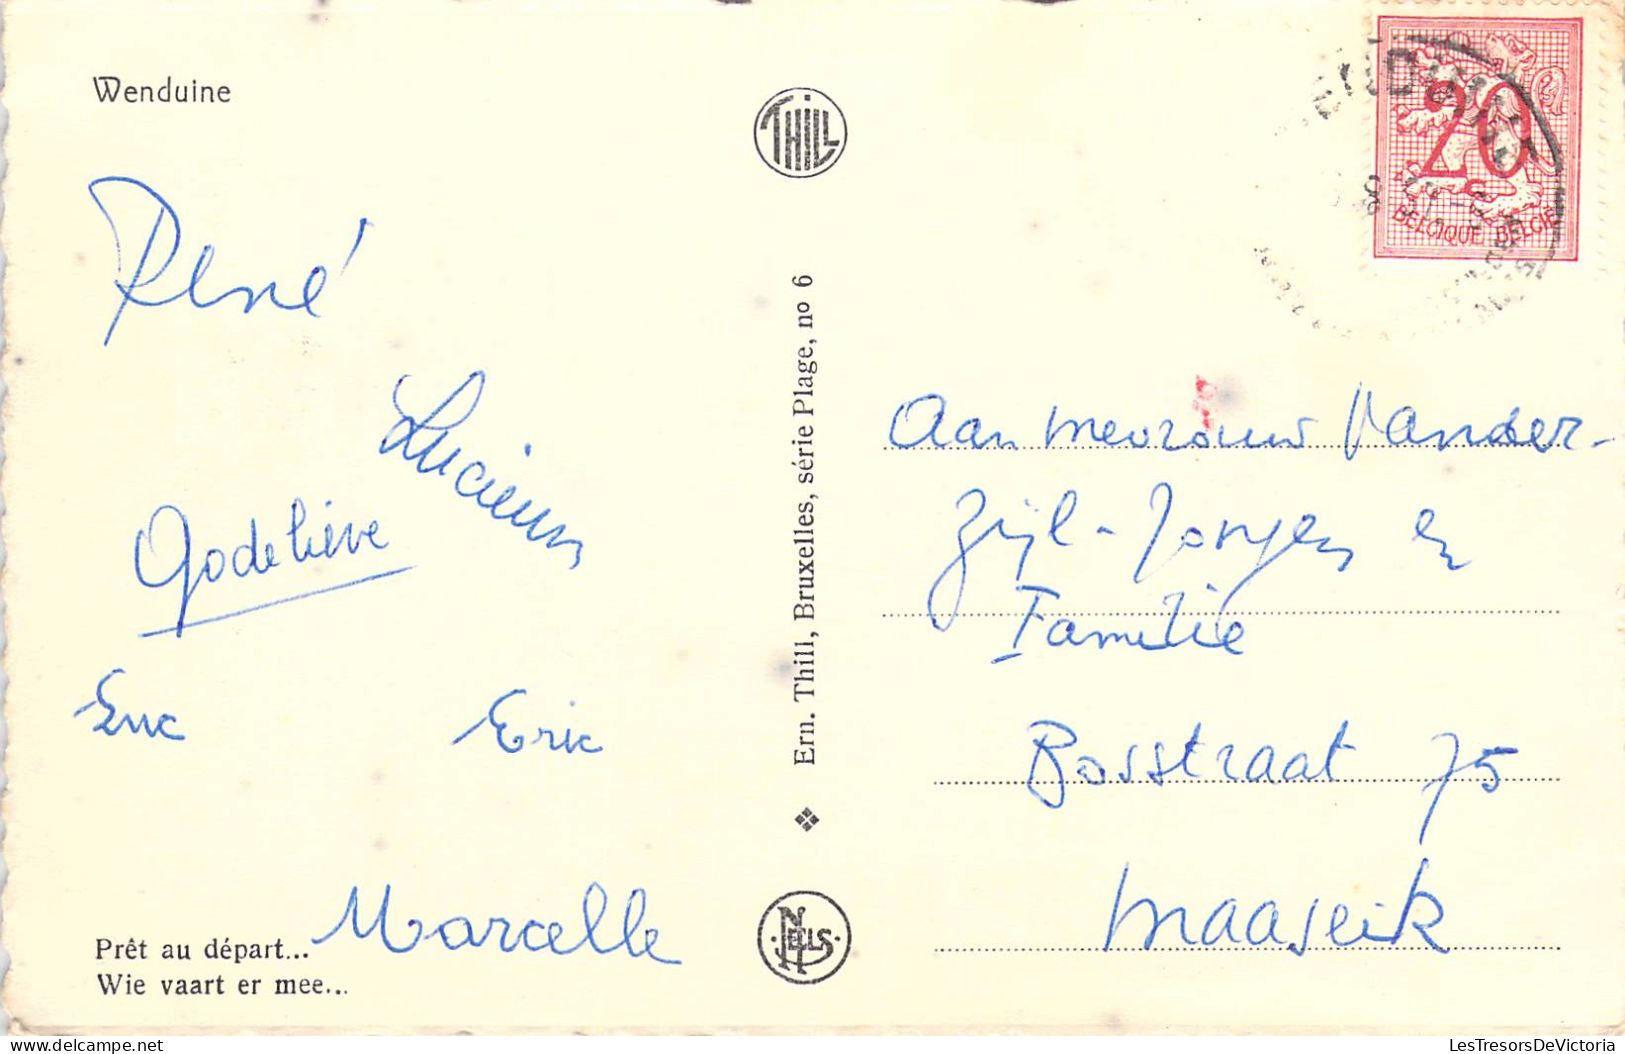 Wenduine
THILL
René
Lucien
Godelieve
Luc
Eric
Marcelle
Prêt au départ...
Wie vaart er mee...
Ern. Thill, Bruxelles, série Plage, no 6
NELS
20
c
BELGIQUE BELGIË
Aan Mevrouw Vander-
Zijl-Jonjen en
Familie
Bosstraat 75
Maaseik
LesTresorsDeVictoria